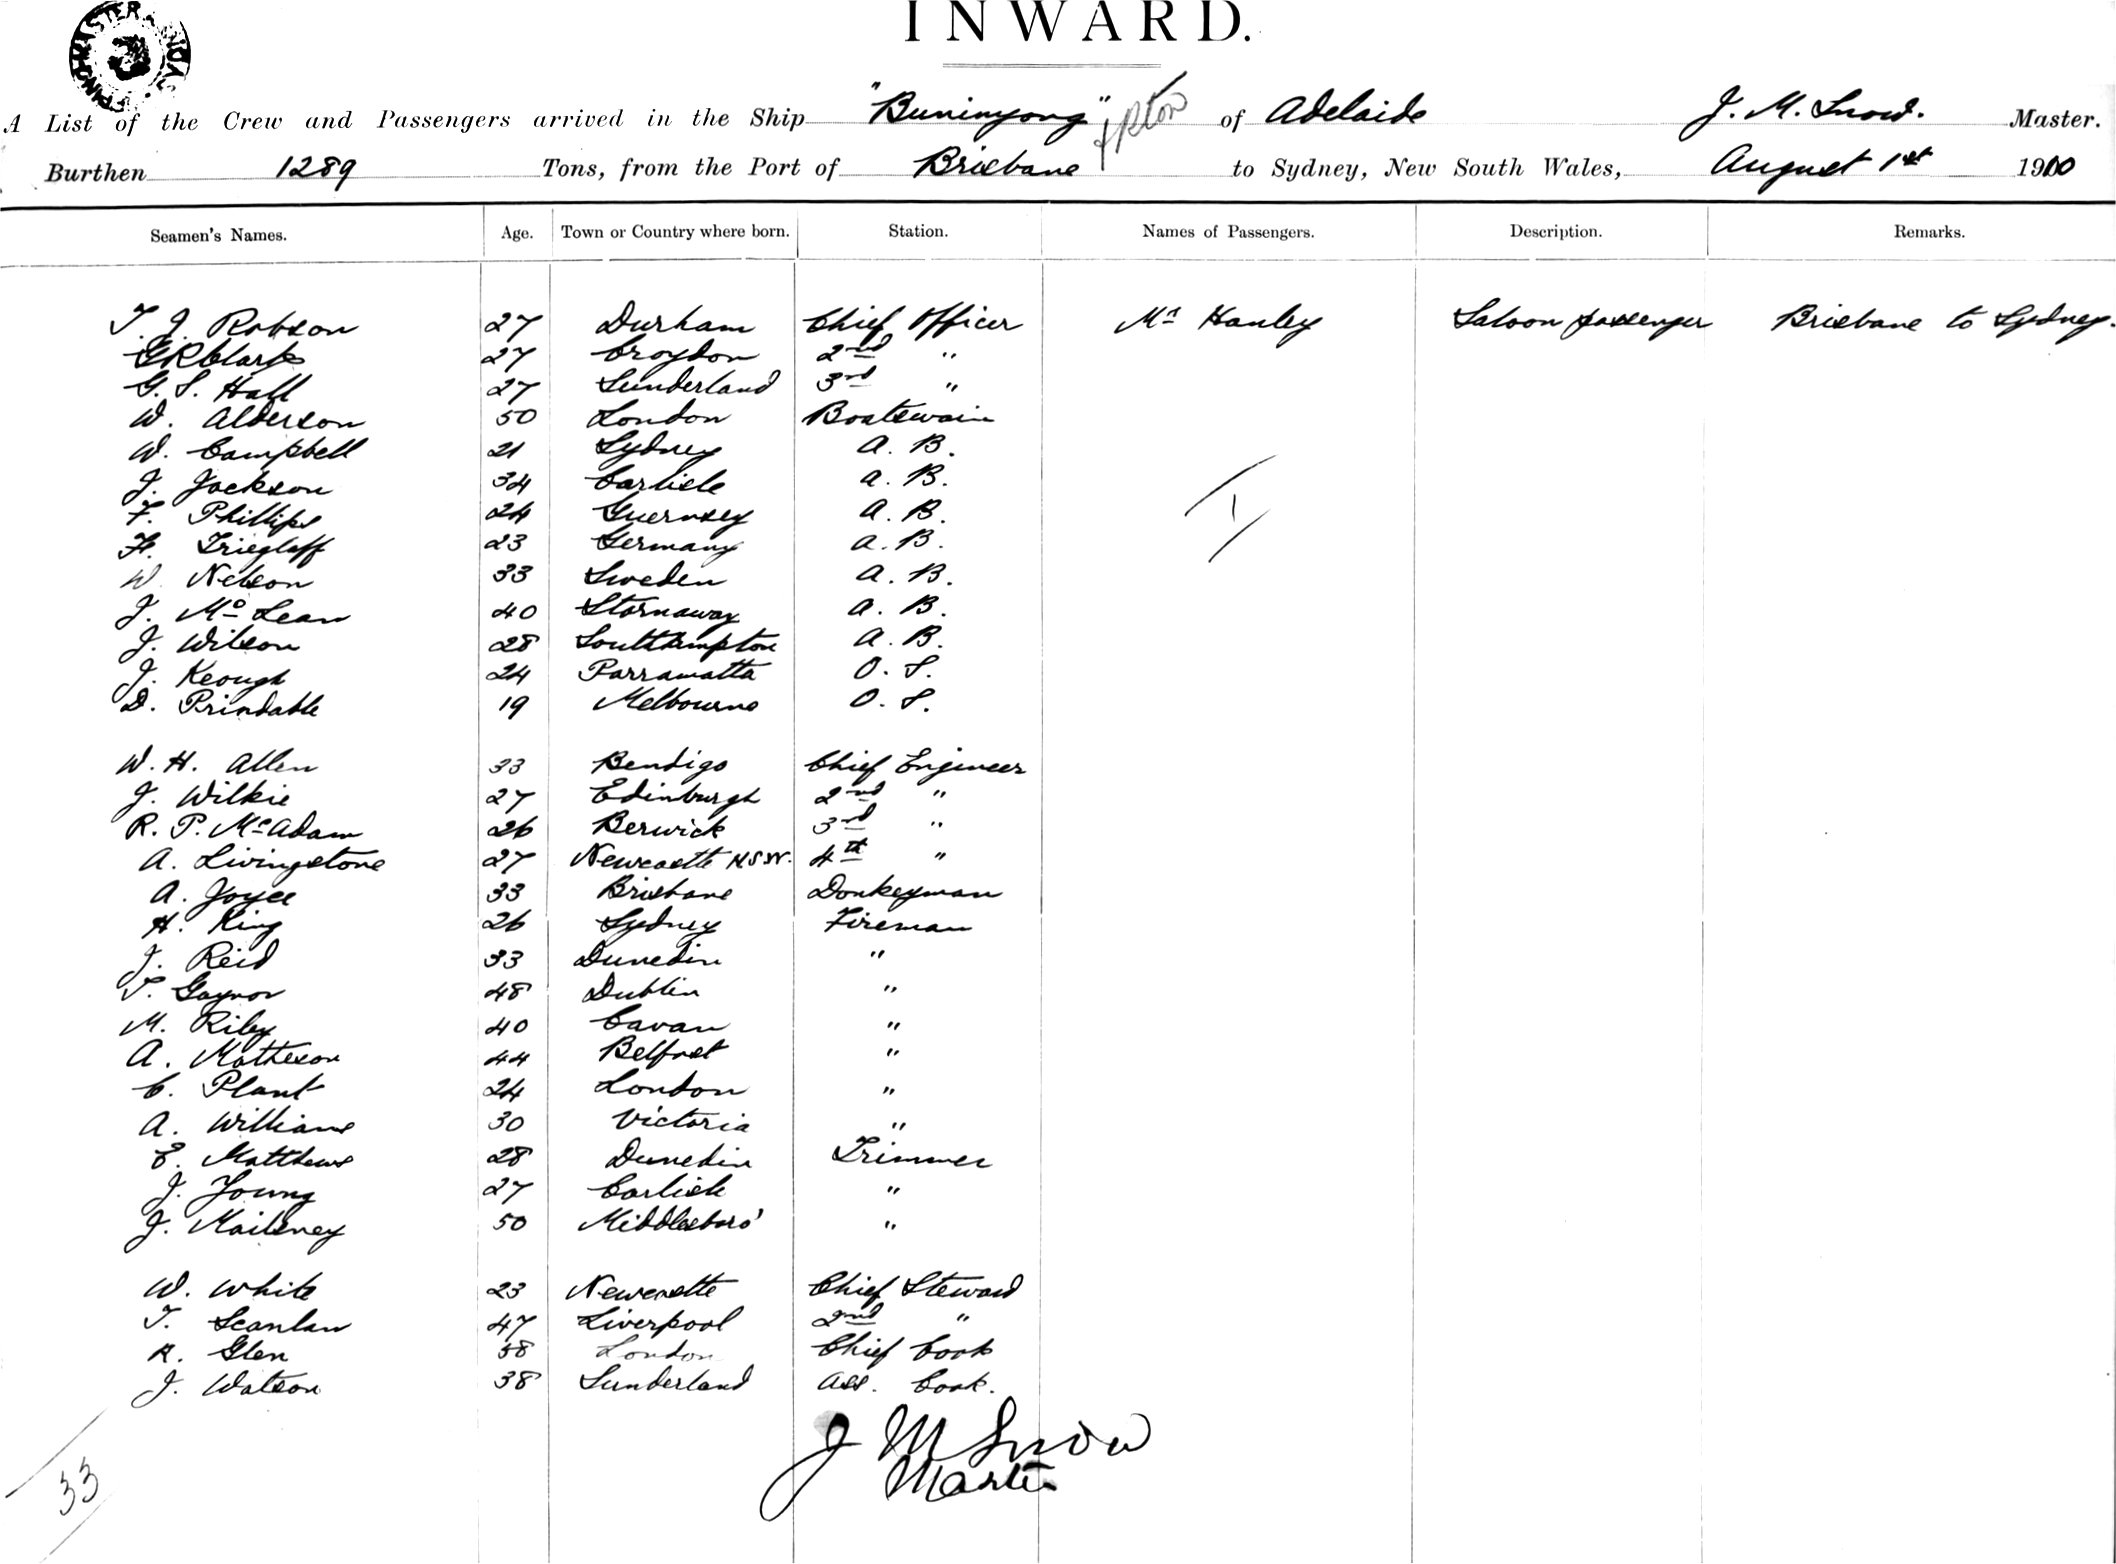 INWARD.
A List of the Crew and Passengers arrived in the Ship "Buninyong" of Adelaide J. M. Snow. Master.
Burthen 1289 Tons, from the Port of Brisbane to Sydney, New South Wales, August 1st 1900
Seamen's Names. Age. Town or Country where born. Station. Names of Passengers. Description. Remarks.
T. J. Robson 27 Durham Chief Officer Mr Hanley Saloon passenger Brisbane to Sydney.
G R Clark 27 Croydon 2nd "
G. S. Hall 27 Sunderland 3rd "
W. Alderson 50 London Boatswain
W. Campbell 21 Sydney A. B.
J. Jackson 34 Carlisle A. B.
F. Phillips 24 Guernsey A. B.
H. Trieglaff 23 Germany A. B.
W. Nelson 33 Sweden A. B.
J. Mc Lean 40 Stornaway A. B.
J. Wilson 28 Southampton A. B.
J. Keough 24 Parramatta O. S.
D. Prindable 19 Melbourne O. S.
1
W. H. Allen 33 Bendigo Chief Engineer
J. Wilkie 27 Edinburgh 2nd "
R. P. McAdam 26 Berwick 3rd "
A. Livingstone 27 Newcastle NSW. 4th "
A. Joyce 33 Brisbane Donkeyman
H. King 26 Sydney Fireman
J. Reid 33 Dunedin "
T. Gaynor 48 Dublin "
M. Riley 40 Cavan "
A. Matheson 44 Belfast "
C. Plant 24 London "
A. Williams 30 Victoria "
E. Matthews 28 Dunedin Trimmer
J. Young 27 Carlisle "
J. 50 Middlesboro' "
W. White 23 Newcastle Chief Steward
T. Scanlan 47 Liverpool 2nd "
R. Glen 58 London Chief Cook
J. Watson 38 Sunderland Ass. Cook.
J M Snow
Master
33